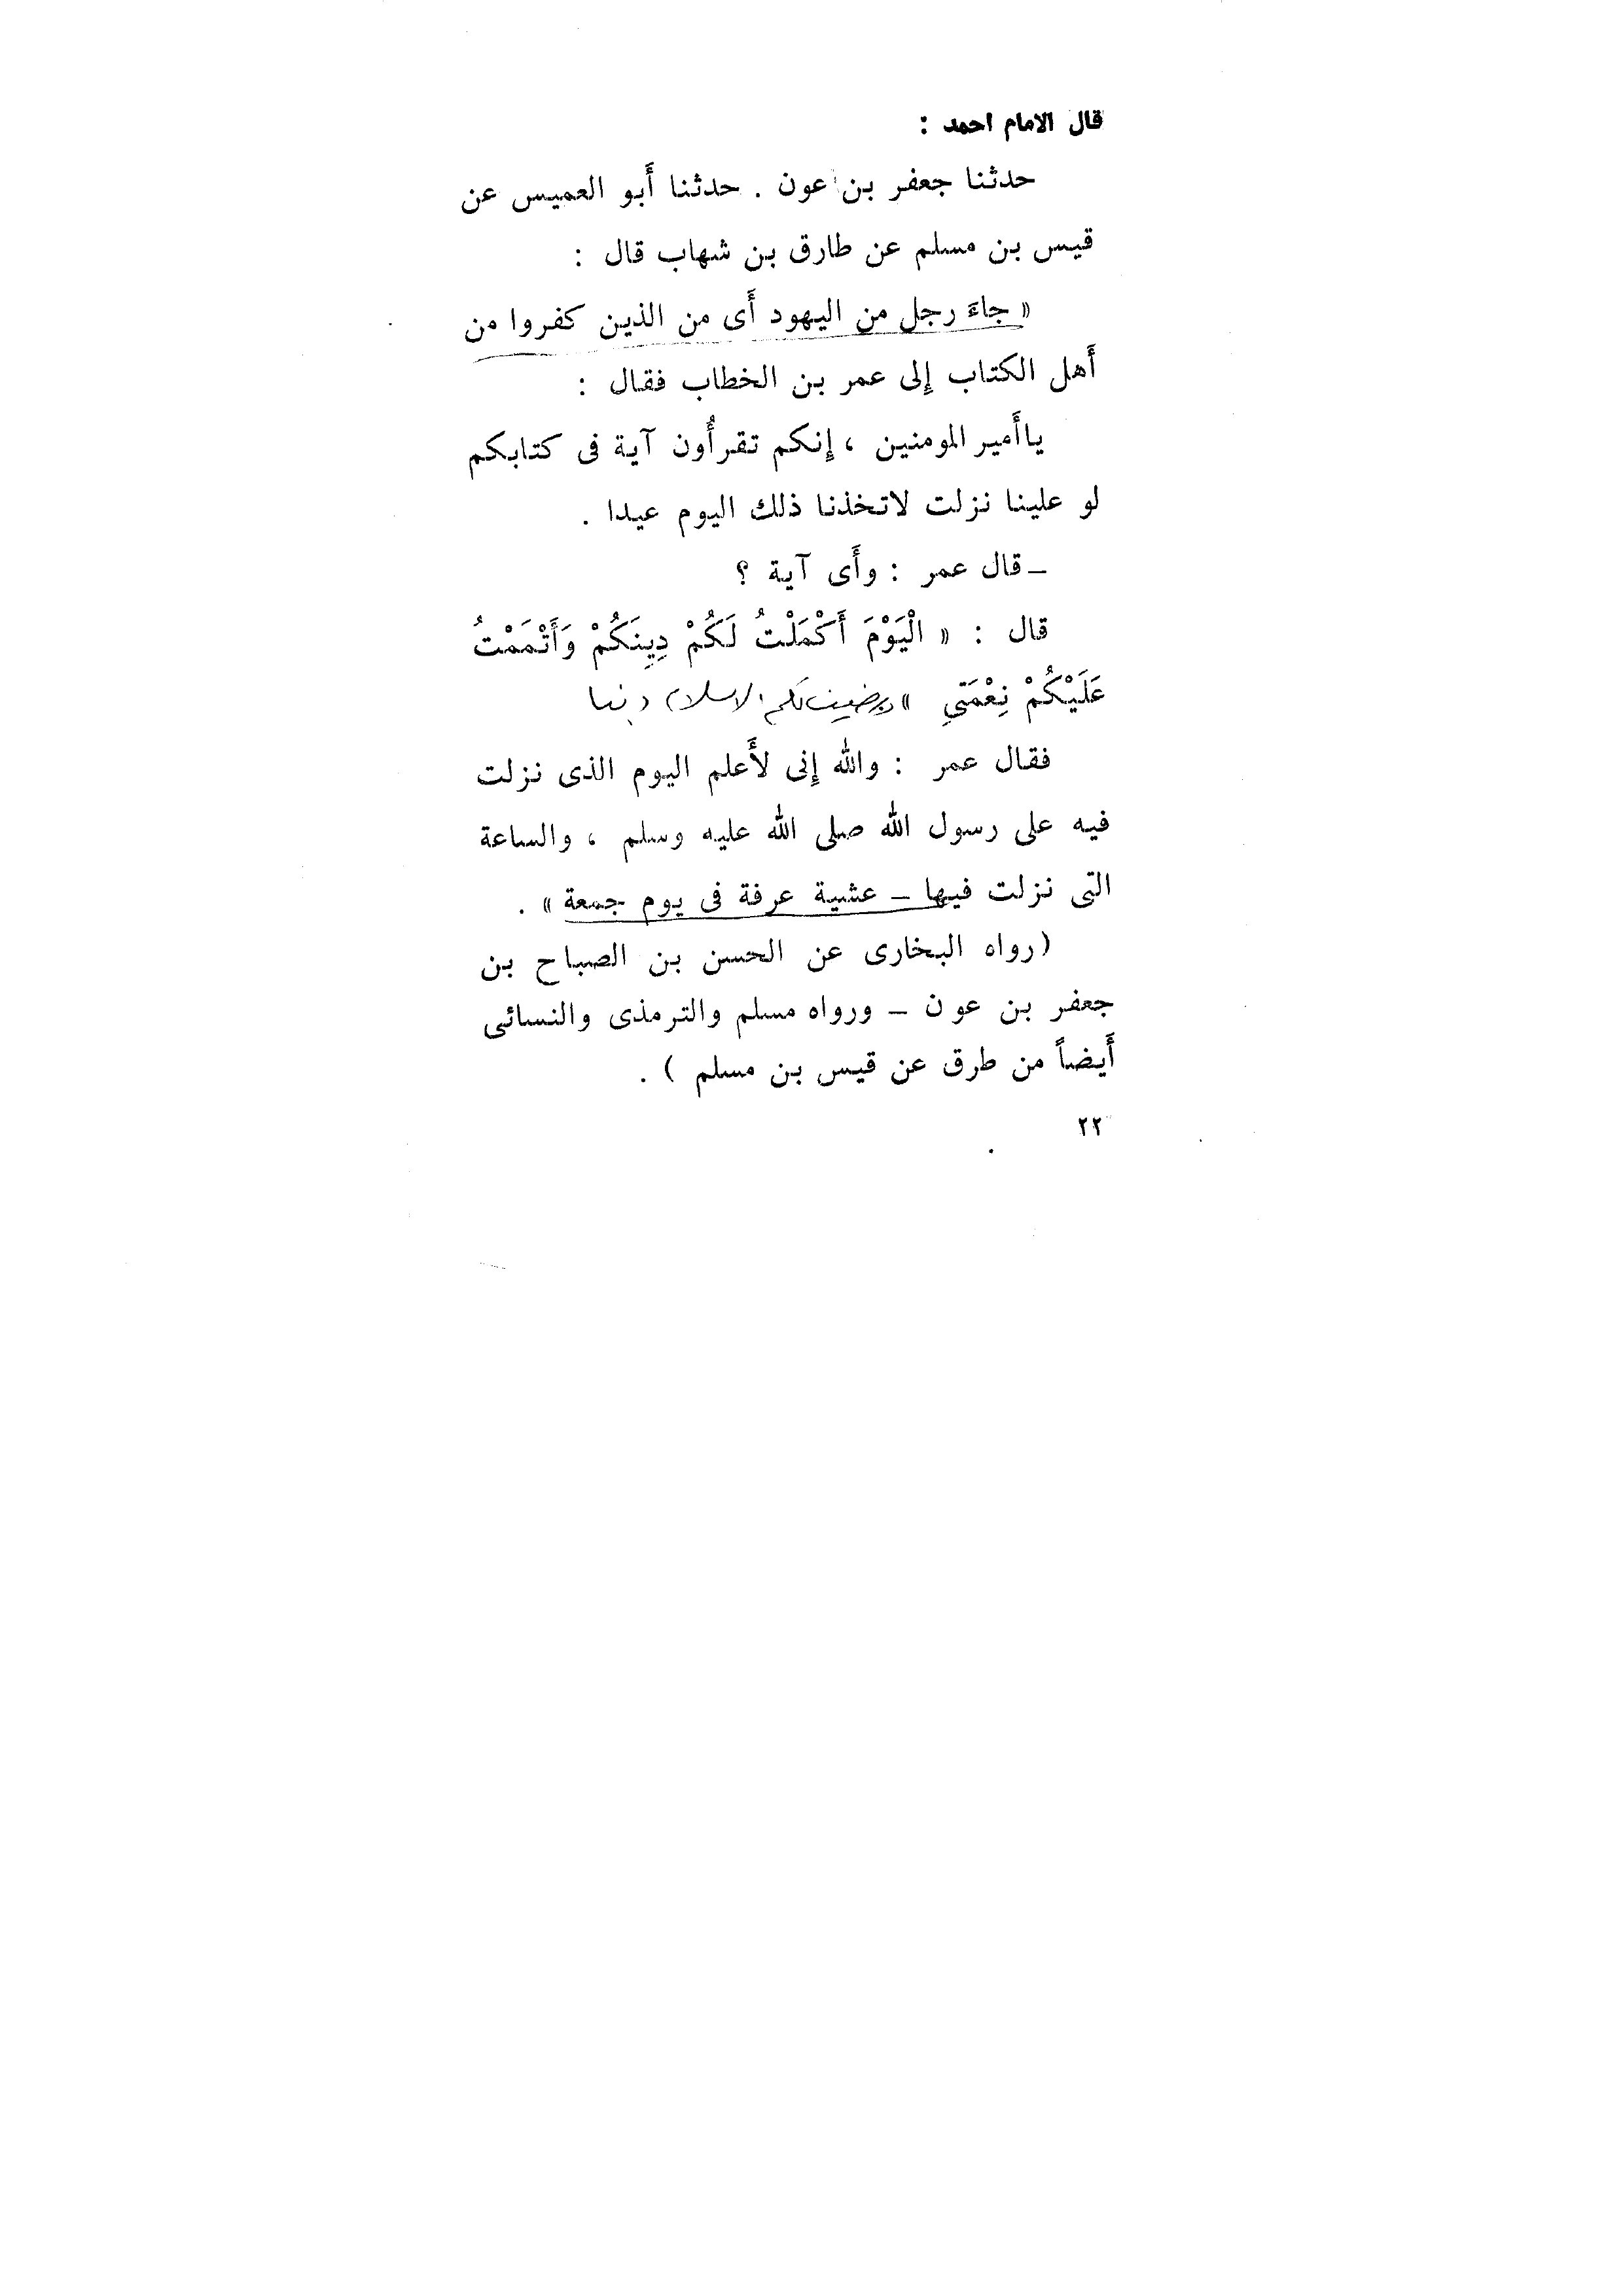 قال الامام احمد :
حدثنا جعفر بن عون . حدثنا أَبو العميس عن
قيس بن مسلم عن طارق بن شهاب قال :
« جاءَ رجل من اليهود أَى من الذين كفروا من
أَهل الكتاب إِلى عمر بن الخطاب فقال :
ياأَمير المومنين ، إِنكم تقرأُون آية فى كتابكم
لو علينا نزلت لاتخذنا ذلك اليوم عيدا .
ـ قال عمر : وأَى آية ؟
قال : « الْيَوْمَ أَكْمَلْتُ لَكُمْ دِينَكُمْ وَأَتْمَمْتُ
عَلَيْكُمْ نِعْمَتِي » ورضيت لكم الاسلام دينا
فقال عمر : والله إِنى لأَعلم اليوم الذى نزلت
فيه على رسول الله صلى الله عليه وسلم ، والساعة
التى نزلت فيها ـ عشية عرفة فى يوم جمعة » .
(رواه البخارى عن الحسن بن الصباح بن
جعفر بن عون ـ ورواه مسلم والترمذى والنسائى
أَيضاً من طرق عن قيس بن مسلم ) .
٢٢